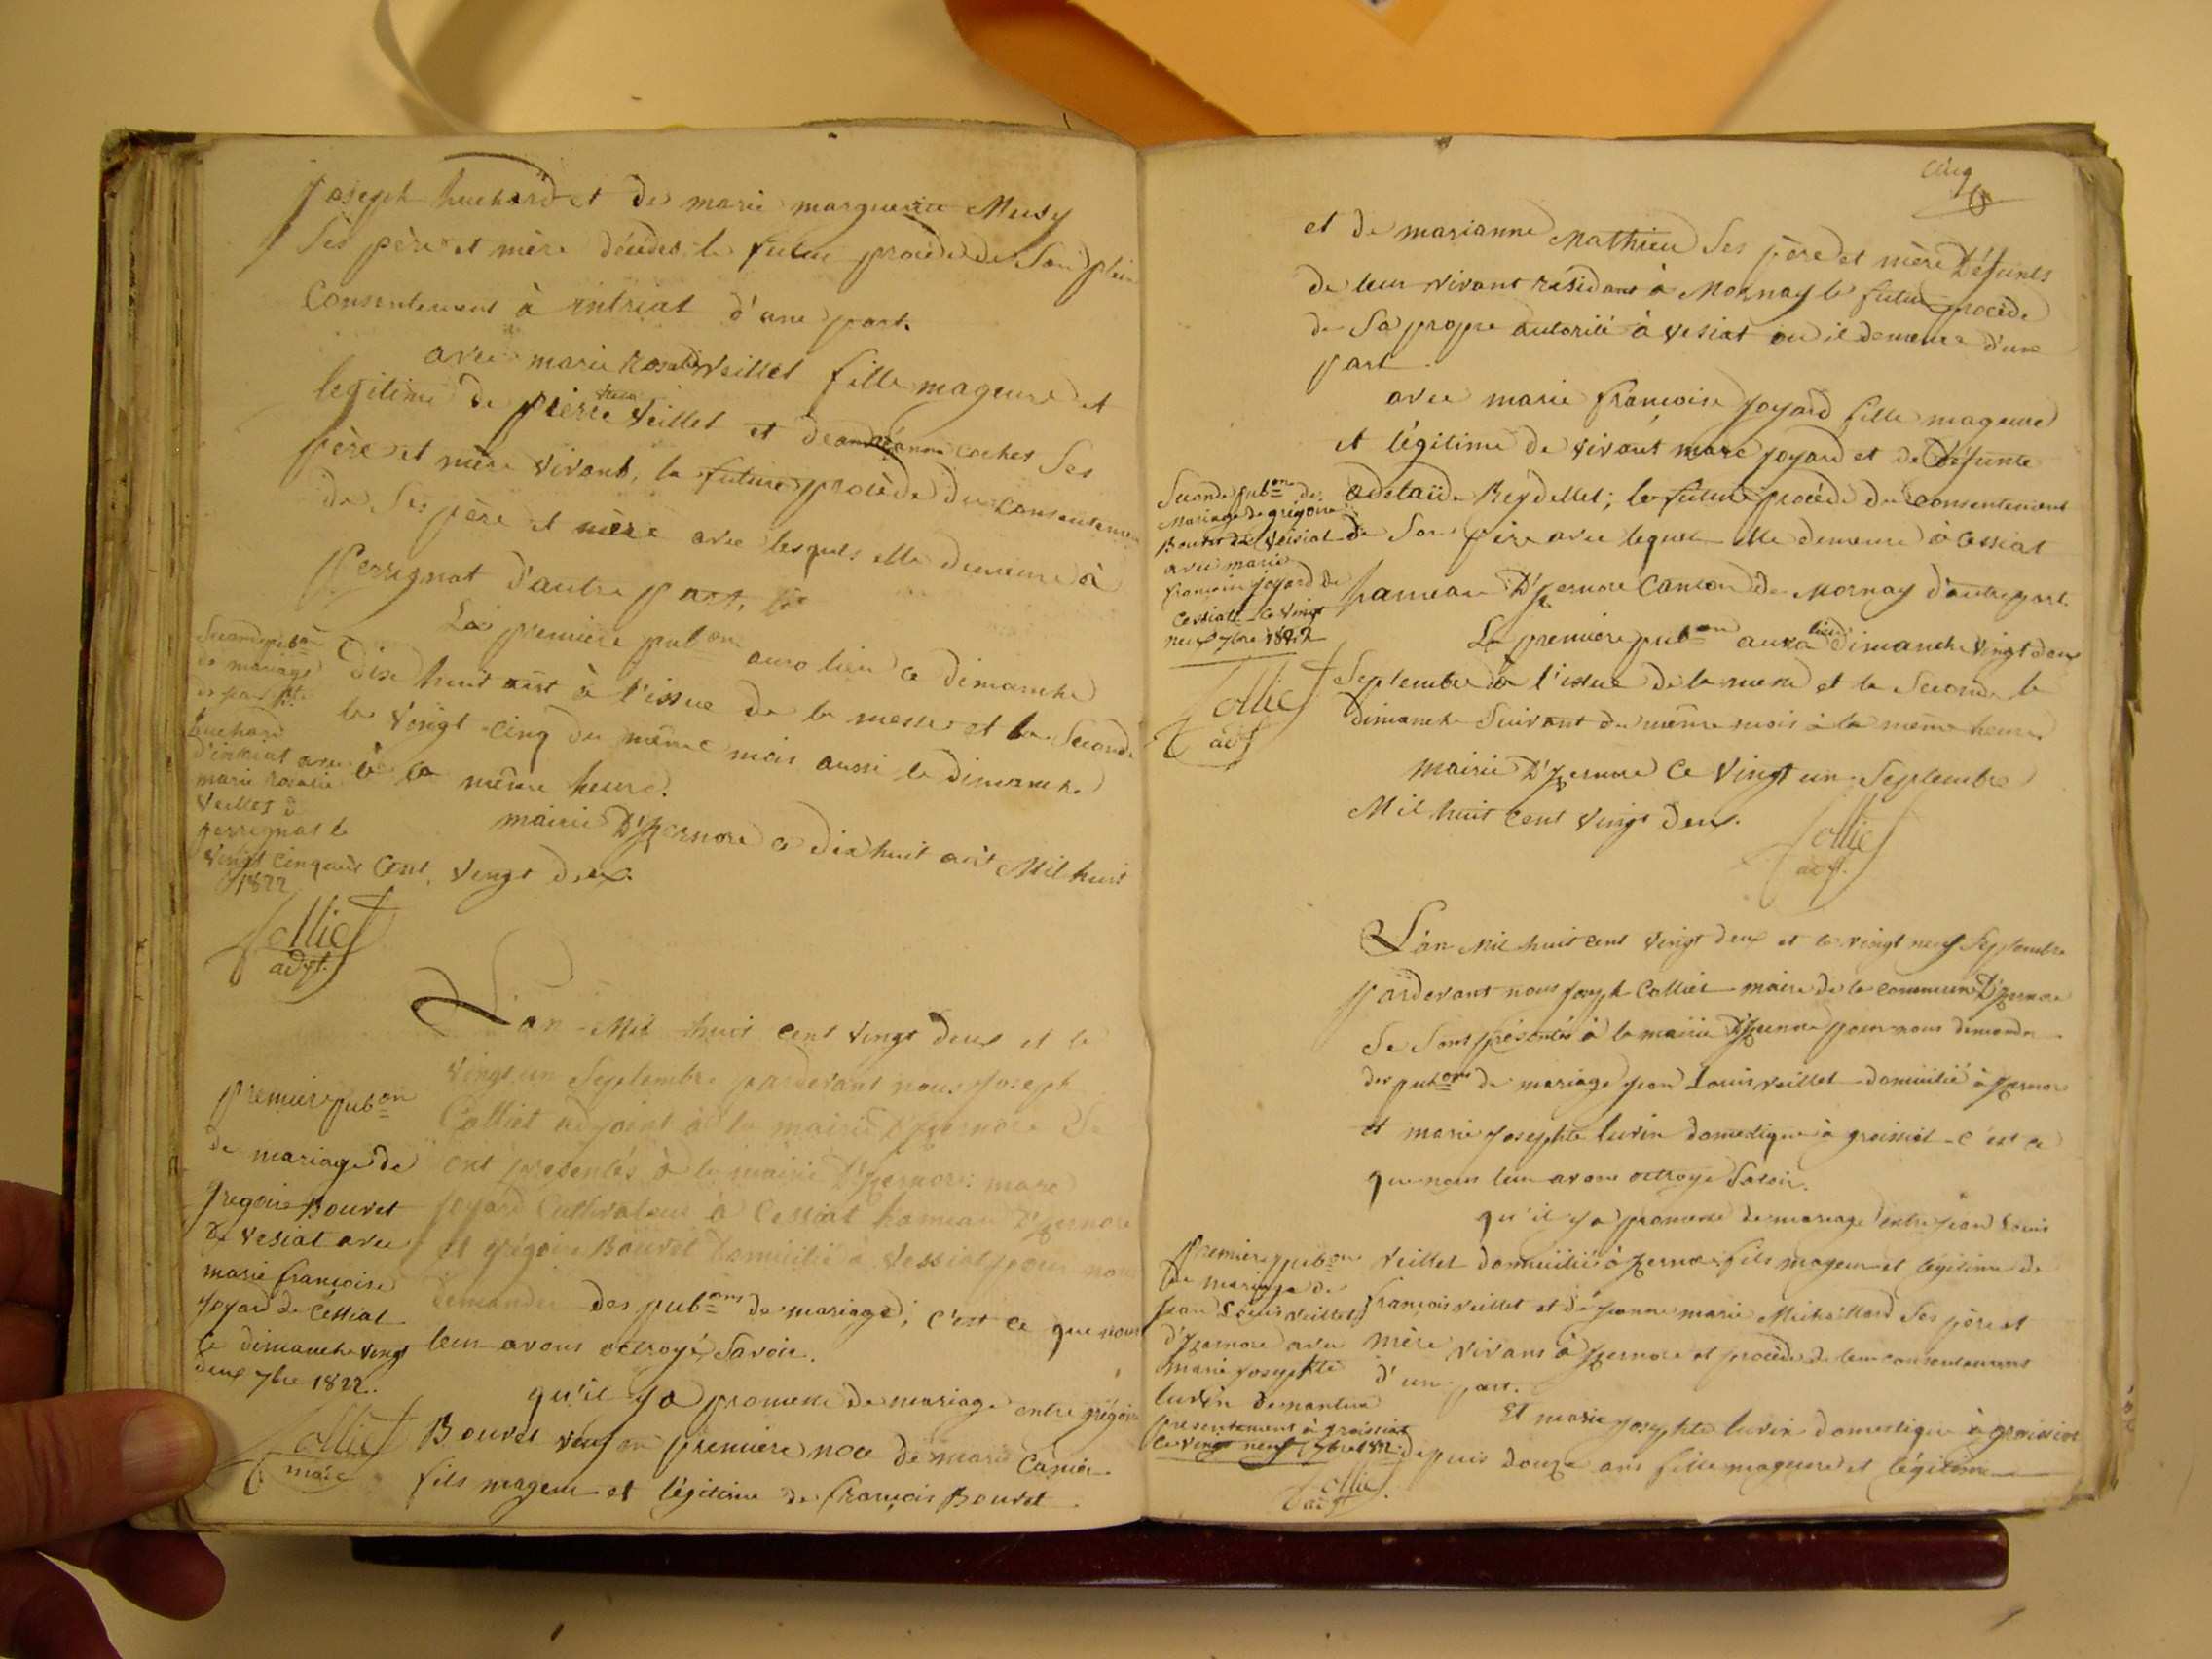 joseph huchard et de marie marguerite Musy
Ses père et mère décédes. le futur procède de Son plein
Consentement à intriat d'une part.
avec marie Rosalie Veillet fille mageure et
legitime de pierre Veillet et de jeanne cochet Ses
père et mère vivant, la future procède du consentement
de Ses père et mère avec lesquels elle demeure à
Perrignat d'autre part,
La premiere pub.on aura lieu ce dimanche
dix huit aût à l'issue de la messe et la Seconde
le vingt-cinq du même mois aussi le dimanche
à la même heure.
mairie D'Izernore ce dix huit aût Mil huit
Cent vingt deux.
Seconde pub.on
de mariage
huchard
d'intriat avec
marie rosalie
Veillet d
perrignat le
vingt cinq aût
1822
Colliet
adjt.
L'an Mil huit cent vingt deux et le
vingt un Septembre pardevant nous Joseph
Colliet adjoint à la mairie D'Izernore Se
Sont presentés à la mairie D'Izernore: marc
Joyard Cultivateur à Cessiat hameau D'Izernore
et grégoire Bouvet domicilié à Vessiat pour nous
demander des pub.ons de mariage; c'est ce que nous
leur avons octroyé Savoir.
qu'il y a promesse de mariage entre grégoire
Bouvet veuf en premiere noce de marie Canier
fils mageur et légitime de françois Bouvet
premiere pub.on
de mariage de
gregoire Bouvet
de vesiat avec
marie françoise
joyard de Cessiat
le dimanche vingt
deux 7bre 1822.
Colliet
maire
cinq
et de marianne Mathieu Ses père et mère Défunts
de leur vivant résidant à Mornay le futur procède
de Sa propre autorité à vesiat ou il demeure d'une
part.
avec marie françoise joyard fille mageure
et légitime de vivant marc joyard et de Défunte
adelaïde Reydellet; la future procède du consentement
de Son père avec lequel elle demeure à Cessiat
hameau D'Izernore Canton de Mornay d'autre part.
La premiere pub.on aura lieu dimanche vingt deux
Septembre à l'issue de la messe et la Seconde le
dimanche Suivant du même mois à la même heure.
mairie D'Izernore Ce vingt un Septembre
Mil huit Cent vingt deux.
Colliet
adjt.
Seconde pub.on de
Mariage de grégoire
Bouvet de Veisiat
avec marie
françoise joyard de
Cessiat le vingt
neuf 7bre 1822
Colliet
adjt
L'an Mil huit cent vingt deux et le vingt neuf Septembre
pardevant nous joseph Colliet maire de la commune D'Izernore
Se Sont présentés à la mairie D'Izernore pour nous demander
des pub.ons de mariage jean Louis veillet domicilié à Izernore
et marie josephte luvin domestique à groissiat c'est ce
que nous leur avons octroyé Savoir.
qu'il y a promesse de mariage entre jean Louis
Veillet domicilié à Izernore fils mageur et légitime de
françois veillet et de jeanne marie Michaillard Ses père et
mère vivans à Izernore et procède de leur consentement
d'une part.
Et marie josephte luvin domestique à groissiat
depuis douze ans fille mageure et légitime
Premiere pub.on
de mariage de
jean Louis veillet
d'Izernore avec
marie josephte
luvin demeurant
presentement à groissiat
le vingt neuf 7bre 1822
Colliet
adjt